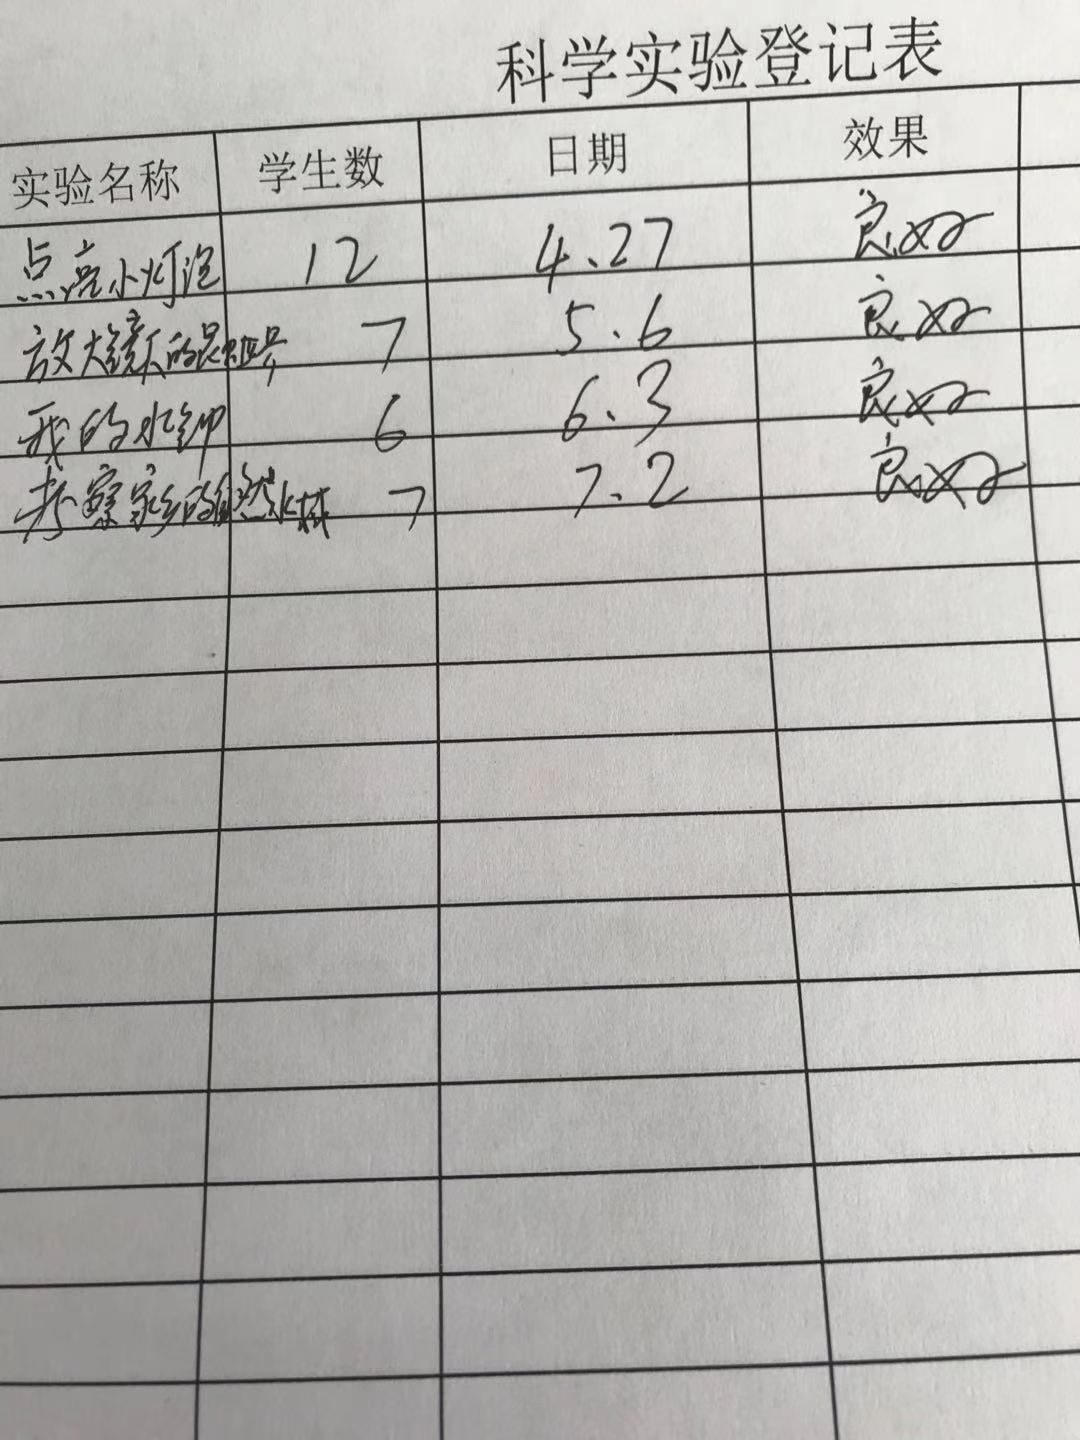 科学实验登记表
实验名称 学生数 日期 效果
点亮小灯泡 12 4.27 良好
放大镜下的昆虫世界 7 5.6 良好
我的水钟 6 6.3 良好
考察家乡的自然水域 7 7.2 良好